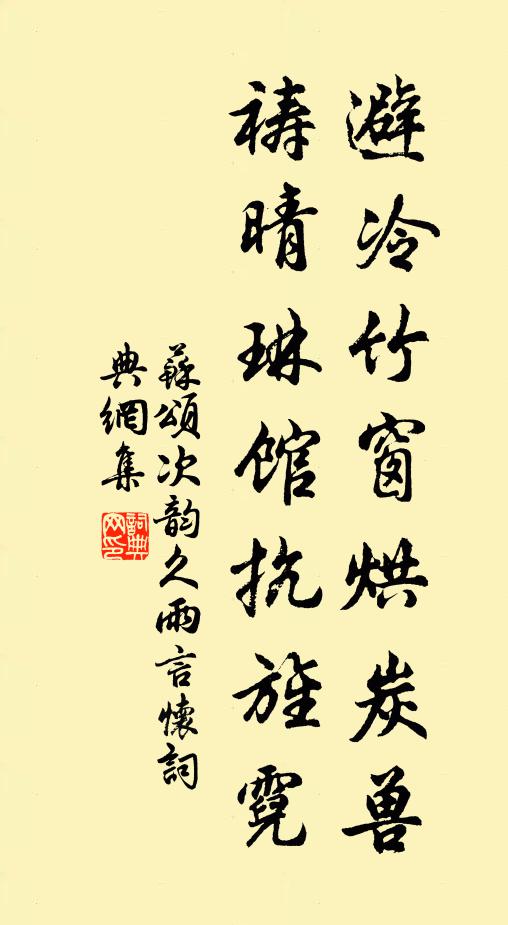 避冷竹窗烘炭兽
祷晴琳馆抗旌霓
蘇頌次韵久雨言懷詞
典網集
詞典网印